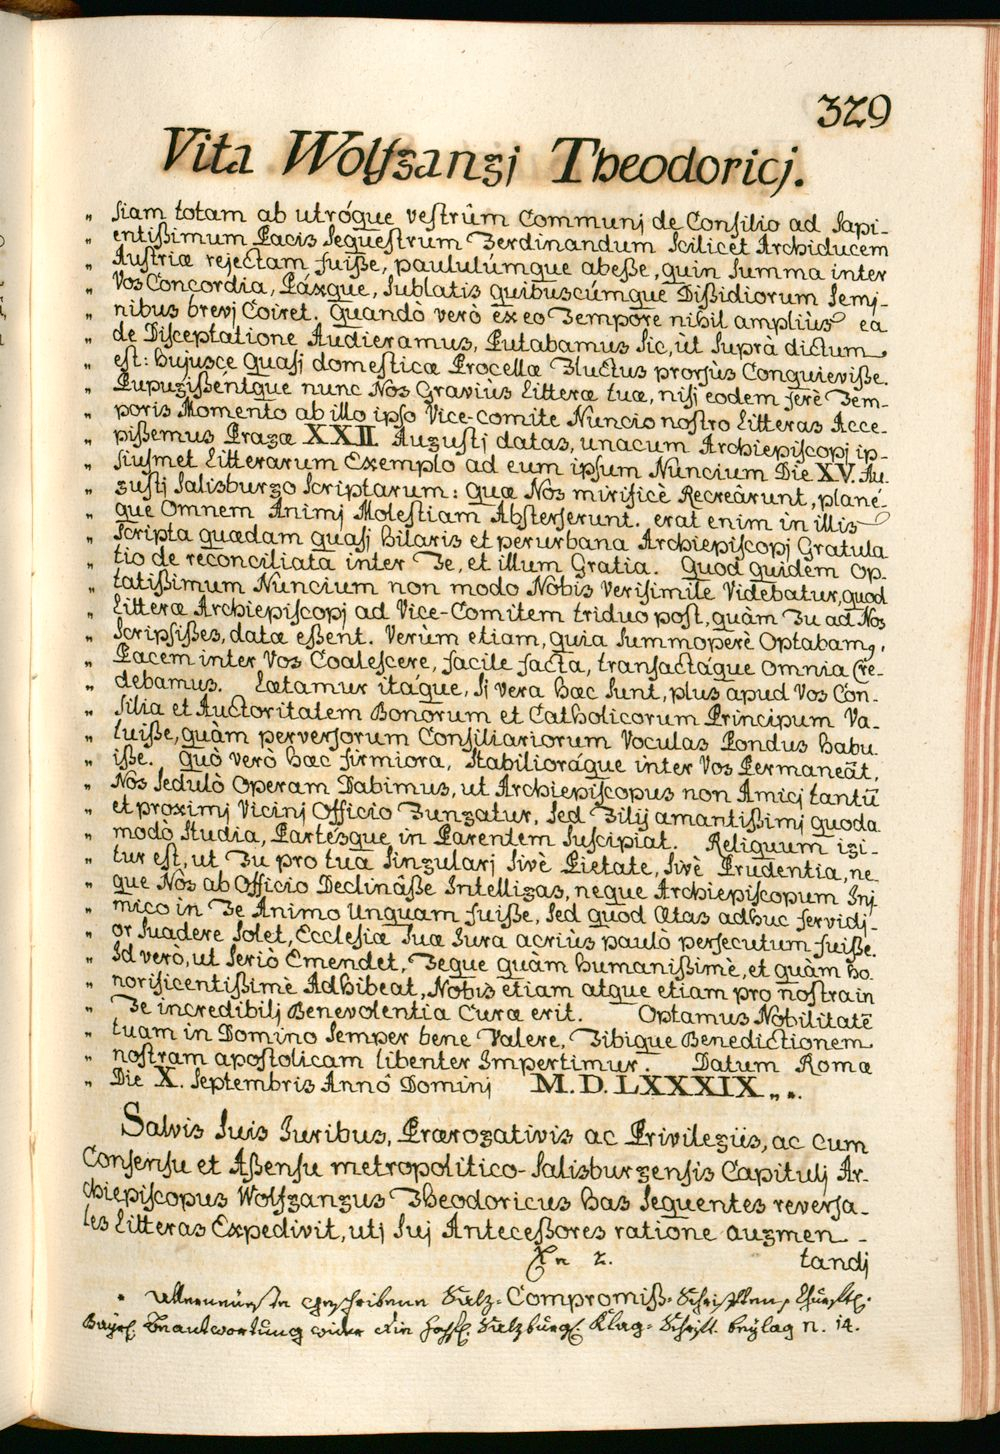 329
Vita Wolfgangj Theodoricj.
„ siam totam ab utróque vestrûm Communj de Consilio ad Sapi-
„ entißimum Pacis Sequestrum Ferdinandum Scilicet Archiducem
„ Austriæ rejectam fuiße, paululúmque abeße, quin Summa inter
„ Vos Concordia, Páxque, Sublatis quibuscúmque Dißidiorum Semj-
„ nibus brevj Coiret. Quandò verò ex eo Tempore nihil ampliùs ea
„ de Disceptatione Audieramus, Putabamus Sic, ut Suprà dictum
„ est: hujusce quasj domesticæ Procellæ Fluctus prorsùs Conquieviße.
„ Pupugißéntque nunc Nos Graviùs Litteræ tuæ, nisj eodem ferè Tem-
„ poris Momento ab illo ipso Vice-comite Nuncio nostro Litteras Acce-
„ pißemus Pragæ XXII. Augustj datas, unacum Archiepiscopj ip-
„ siusmet Litterarum Exemplo ad eum ipsum Nuncium Die XV. Au-
„ gustj Salisburgo Scriptarum: Quæ Nos mirificè Recreârunt, plané-
„ que Omnem Animj Molestiam Absterserunt. erat enim in illis
„ Scripta quædam quasj hilaris et perurbana Archiepiscopj Gratula
„ tio de reconciliata inter Te, et illum Gratia. Quod quidem Op-
„ tatißimum Nuncium non modo Nobis Verisimile Videbatur, quod
„ Litteræ Archiepiscopj ad Vice-Comitem triduo post, quàm Tu ad Nos
„ Scripsißes, datæ eßent. Verùm etiam, quia Summoperè Optabam9,
„ Pacem inter Vos Coalescere, facile facta, transactáque Omnia Cre-
„ debamus. Lætamur itáque, Sj vera hæc Sunt, plus apud Vos Con-
„ silia et Auctoritatem Bonorum et Catholicorum Principum Va-
„ luiße, quàm perversorum Consiliariorum Voculas Pondus habu
„ iße. Quò verò hæc firmiora, Stabilioráque inter Vos Permaneāt,
„ Nos Sedulò Operam Dabimus, ut Archiepiscopus non Amicj tantū
„ et proximj Vicinj Officio Fungatur, Sed Filij amantißimj quoda
„ modò Studia, Partésque in Parentem Suscipiat. Reliquum igi-
„ tur est, ut Tu pro tua Singularj Sivè Pietate, Sivè Prudentia, ne
„ que Nos ab Officio Declinâße Intelligas, neque Archiepiscopum Inj
„ mico in Te Animo Unquam fuiße, Sed quod Ætas adhuc fervidj-
„ or Suadere Solet, Ecclesiæ Suæ Jura acriùs paulò persecutum fuiße.
„ Id verò, ut Seriò Emendet, Teque quàm humanißimè, et quàm ho
„ norificentißimè Adhibeat, Nobis etiam atque etiam pro nostra in
„ Te incredibilj Benevolentia Curæ erit. Optamus Nobilitatē
„ tuam in Domino Semper bene Valere, Tibique Benedictionem
„ nostram apostolicam libenter Impertimur. Datum Romæ
„ Die X. Septembris Annô Dominj M.D.LXXXIX „.
Salvis Suis Juribus, Prærogativis ac Privilegiis, ac cum
Consensu et Aßensu metropolitico-Salisburgensis Capitulj Ar-
chiepiscopus Wolfgangus Theodoricus has Sequentes reversa-
les Litteras Expedivit, utj Suj Anteceßores ratione augmen-
tandj
* Allerneüeste geschribene Salz-Compromiß-Schrifften, Churftl.
Bayrl. Beantwortung wider die hochfl. Salzburgl. Klag-Schrifft. beÿlag n. 14.